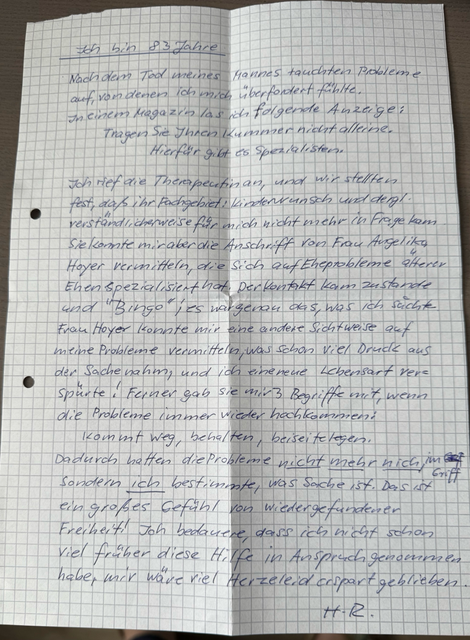 Ich bin 83 Jahre
Nach dem Tod meines Mannes tauchten Probleme
auf, von denen ich mich überfordert fühlte.
In einem Magazin las ich folgende Anzeige:
Tragen Sie Ihren Kummer nicht alleine.
Hierfür gibt es Spezialisten.
Ich rief die Therapeutin an, und wir stellten
fest, daß ihr Fachgebiet: Kinderwunsch und dergl.
verständlicherweise für mich nicht mehr in Frage kam
Sie konnte mir aber die Anschrift von Frau Angelika
Hoyer vermitteln, die sich auf Eheprobleme älterer
Ehen spezialisiert hat. Der Kontakt kam zustande
und "Bingo", es war genau das, was ich suchte
Frau Hoyer konnte mir eine andere Sichtweise auf
meine Probleme vermitteln, was schon viel Druck aus
der Sache nahm, und ich eine neue Lebensart ver-
spürte! Ferner gab sie mir 3 Begriffe mit, wenn
die Probleme immer wieder hochkommen:
Kommt weg, behalten, beiseitelegen.
Dadurch hatten die Probleme nicht mehr mich im
Griff
sondern ich bestimmte, was Sache ist. Das ist
ein großes Gefühl von wiedergefundener
Freiheit! Ich bedauere, dass ich nicht schon
viel früher diese Hilfe in Anspruch genommen
habe, mir wäre viel Herzeleid erspart geblieben.
H.R.